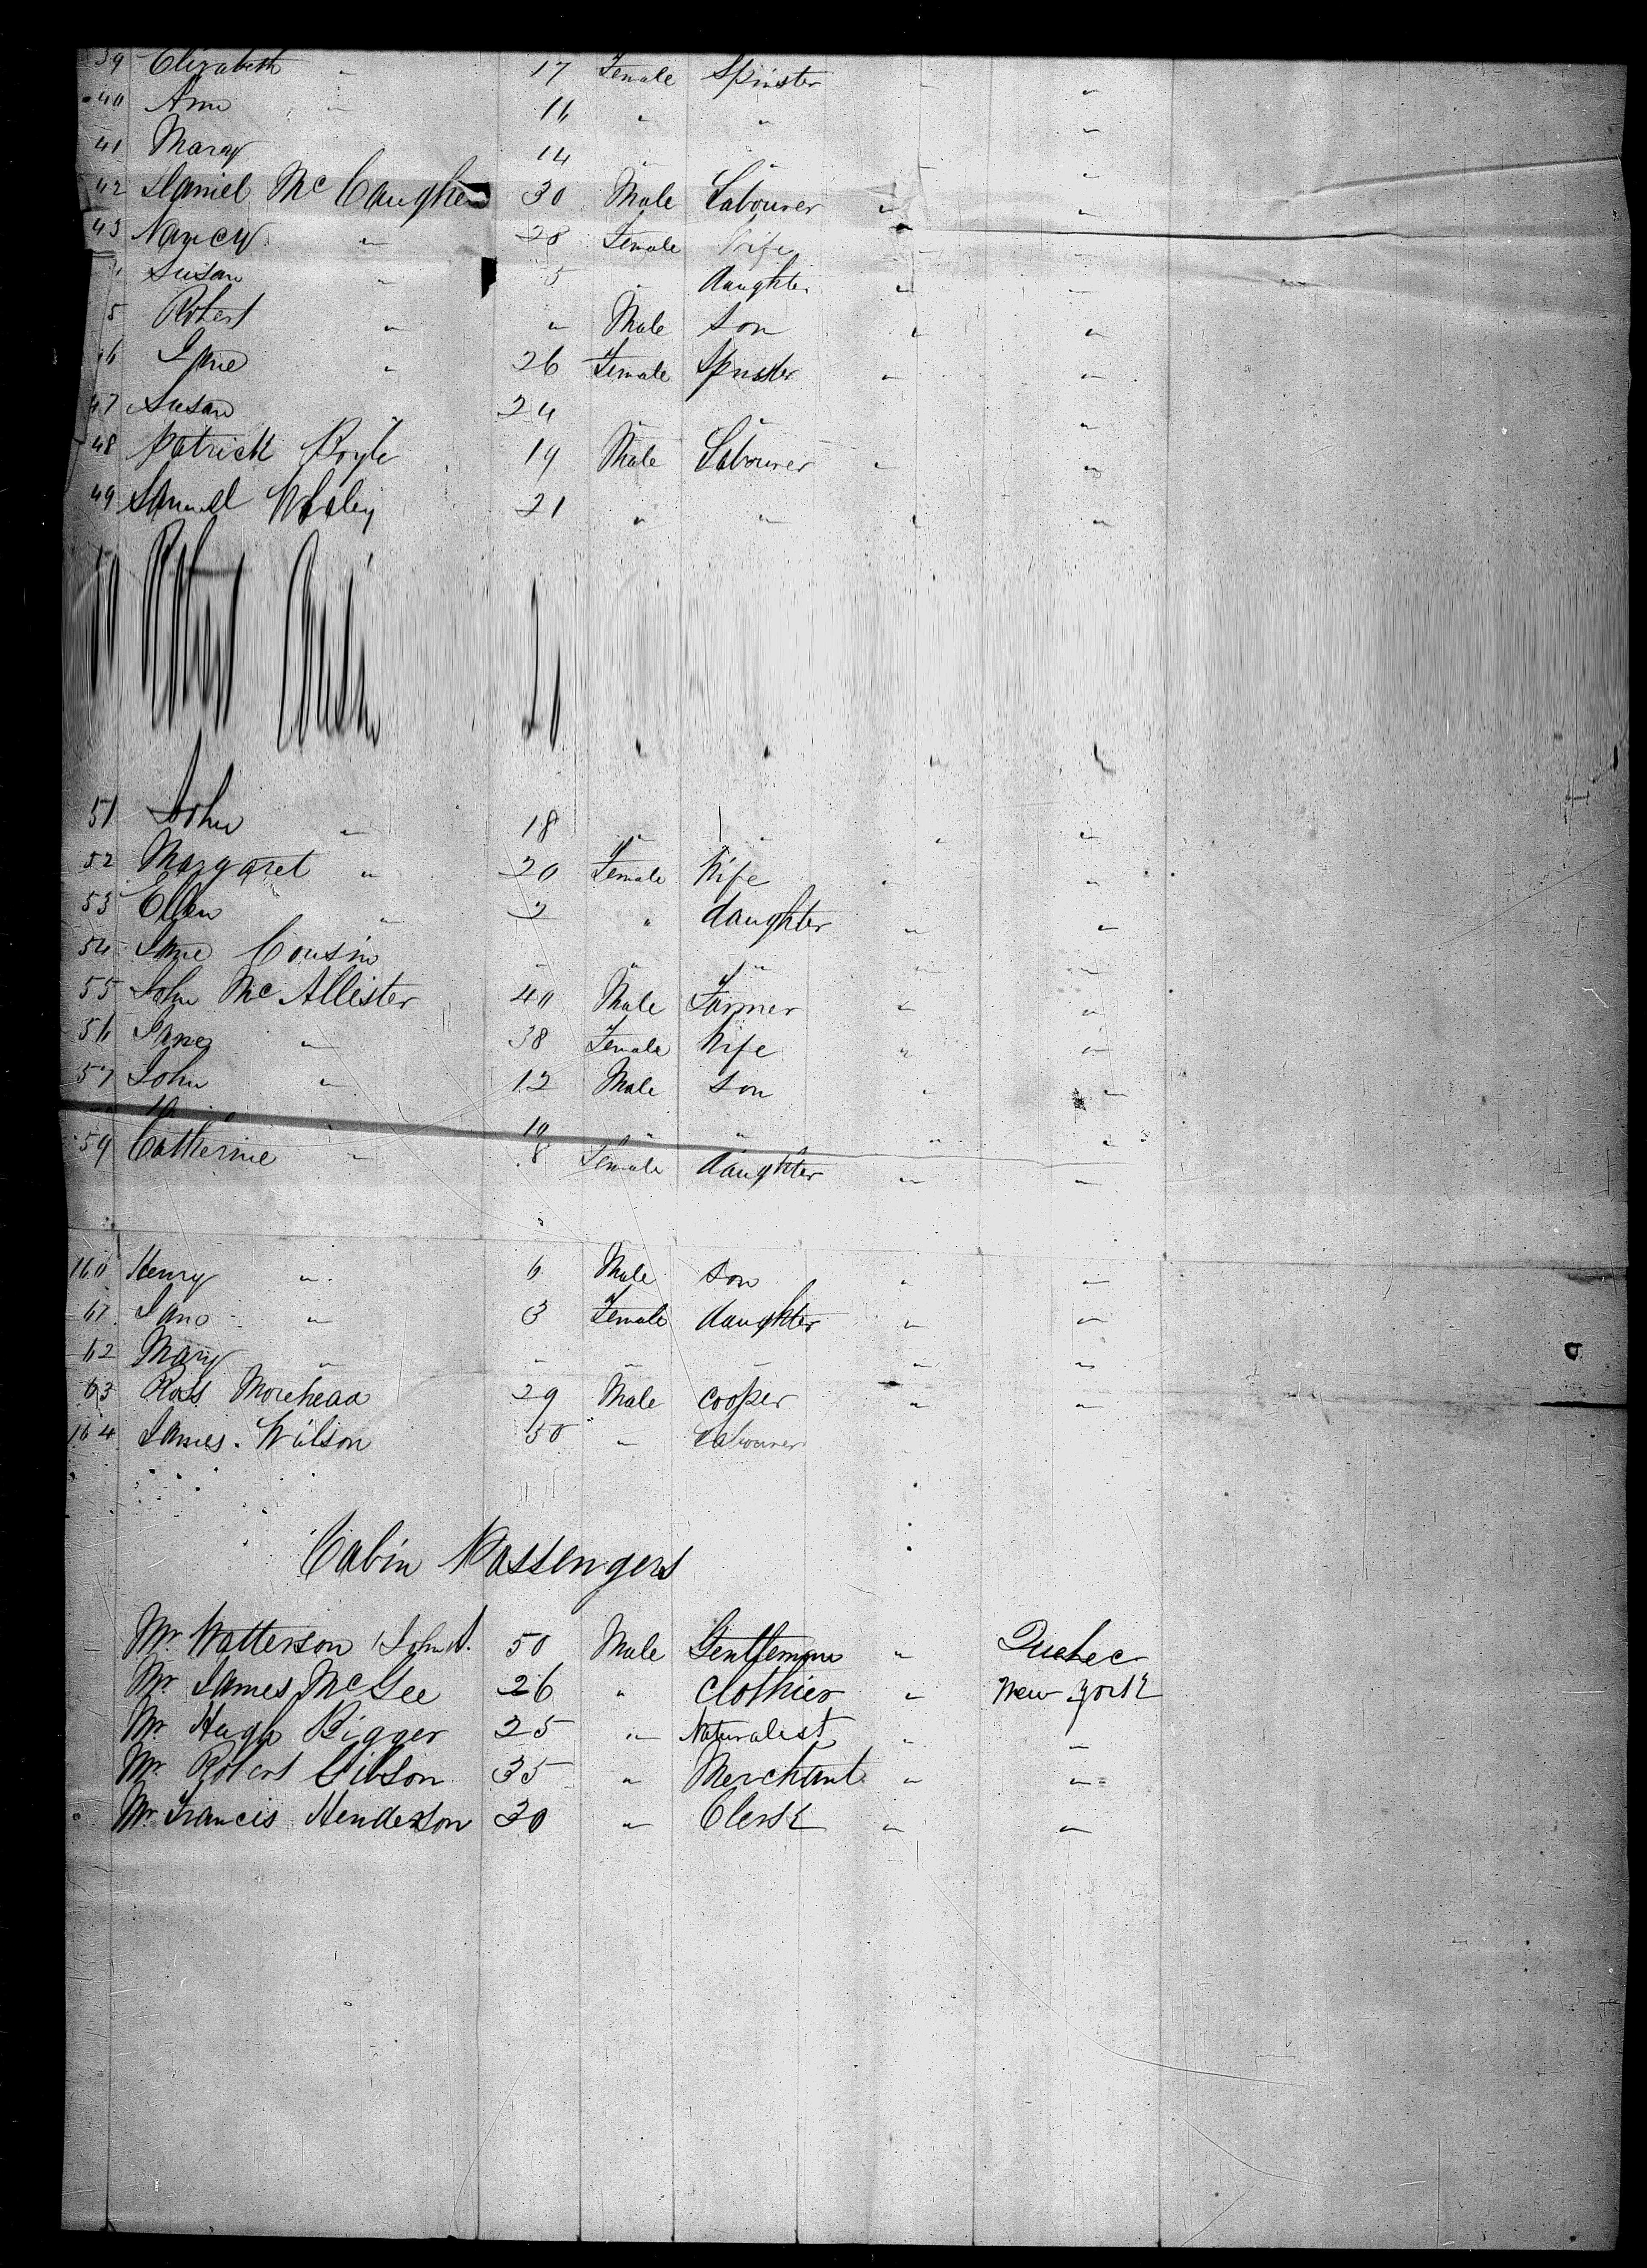 39 Elizabeth " 17 Female Spinster " "
40 Ann " 16 " " "
41 Mary 14 " " " "
42 Daniel McCaughen 30 Male Labourer " "
43 Nancy " 28 Female Wife " "
Susan " 5 " daughter " "
5 Robert " " Male Son " "
6 Jane " 26 Female Spinster " "
47 Susan " 24 " " " "
48 Patrick Boyle 19 Male Labourer " "
49 Samuel 21 " " " "
" " " "
51 John " 18 " " " "
52 Margaret " 20 Female Wife " "
53 Ellen " 2 " daughter " "
54 Jane Cousin " " " " "
55 John McAllister 40 Male Farmer " "
56 Jane " 38 Female Wife " "
57 John " 12 Male Son " "
10 " " " "
59 Catherine " 8 Female daughter " "
160 Henry " 6 Male Son " "
61 Jane " 3 Female daughter " "
62 Mary " " " " " "
63 Ross Morehead 29 Male Cooper " "
164 James Wilson 50 " Labourer
Cabin Passengers
Mr Watterson John 50 Male Gentleman " Quebec
Mr James McGee 26 " Clothier " New York
Mr Hugh Bigger 25 " Naturalist " "
Mr Robert Gibson 35 " Merchant " "
Mr Francis Henderson 30 " Clerk " "